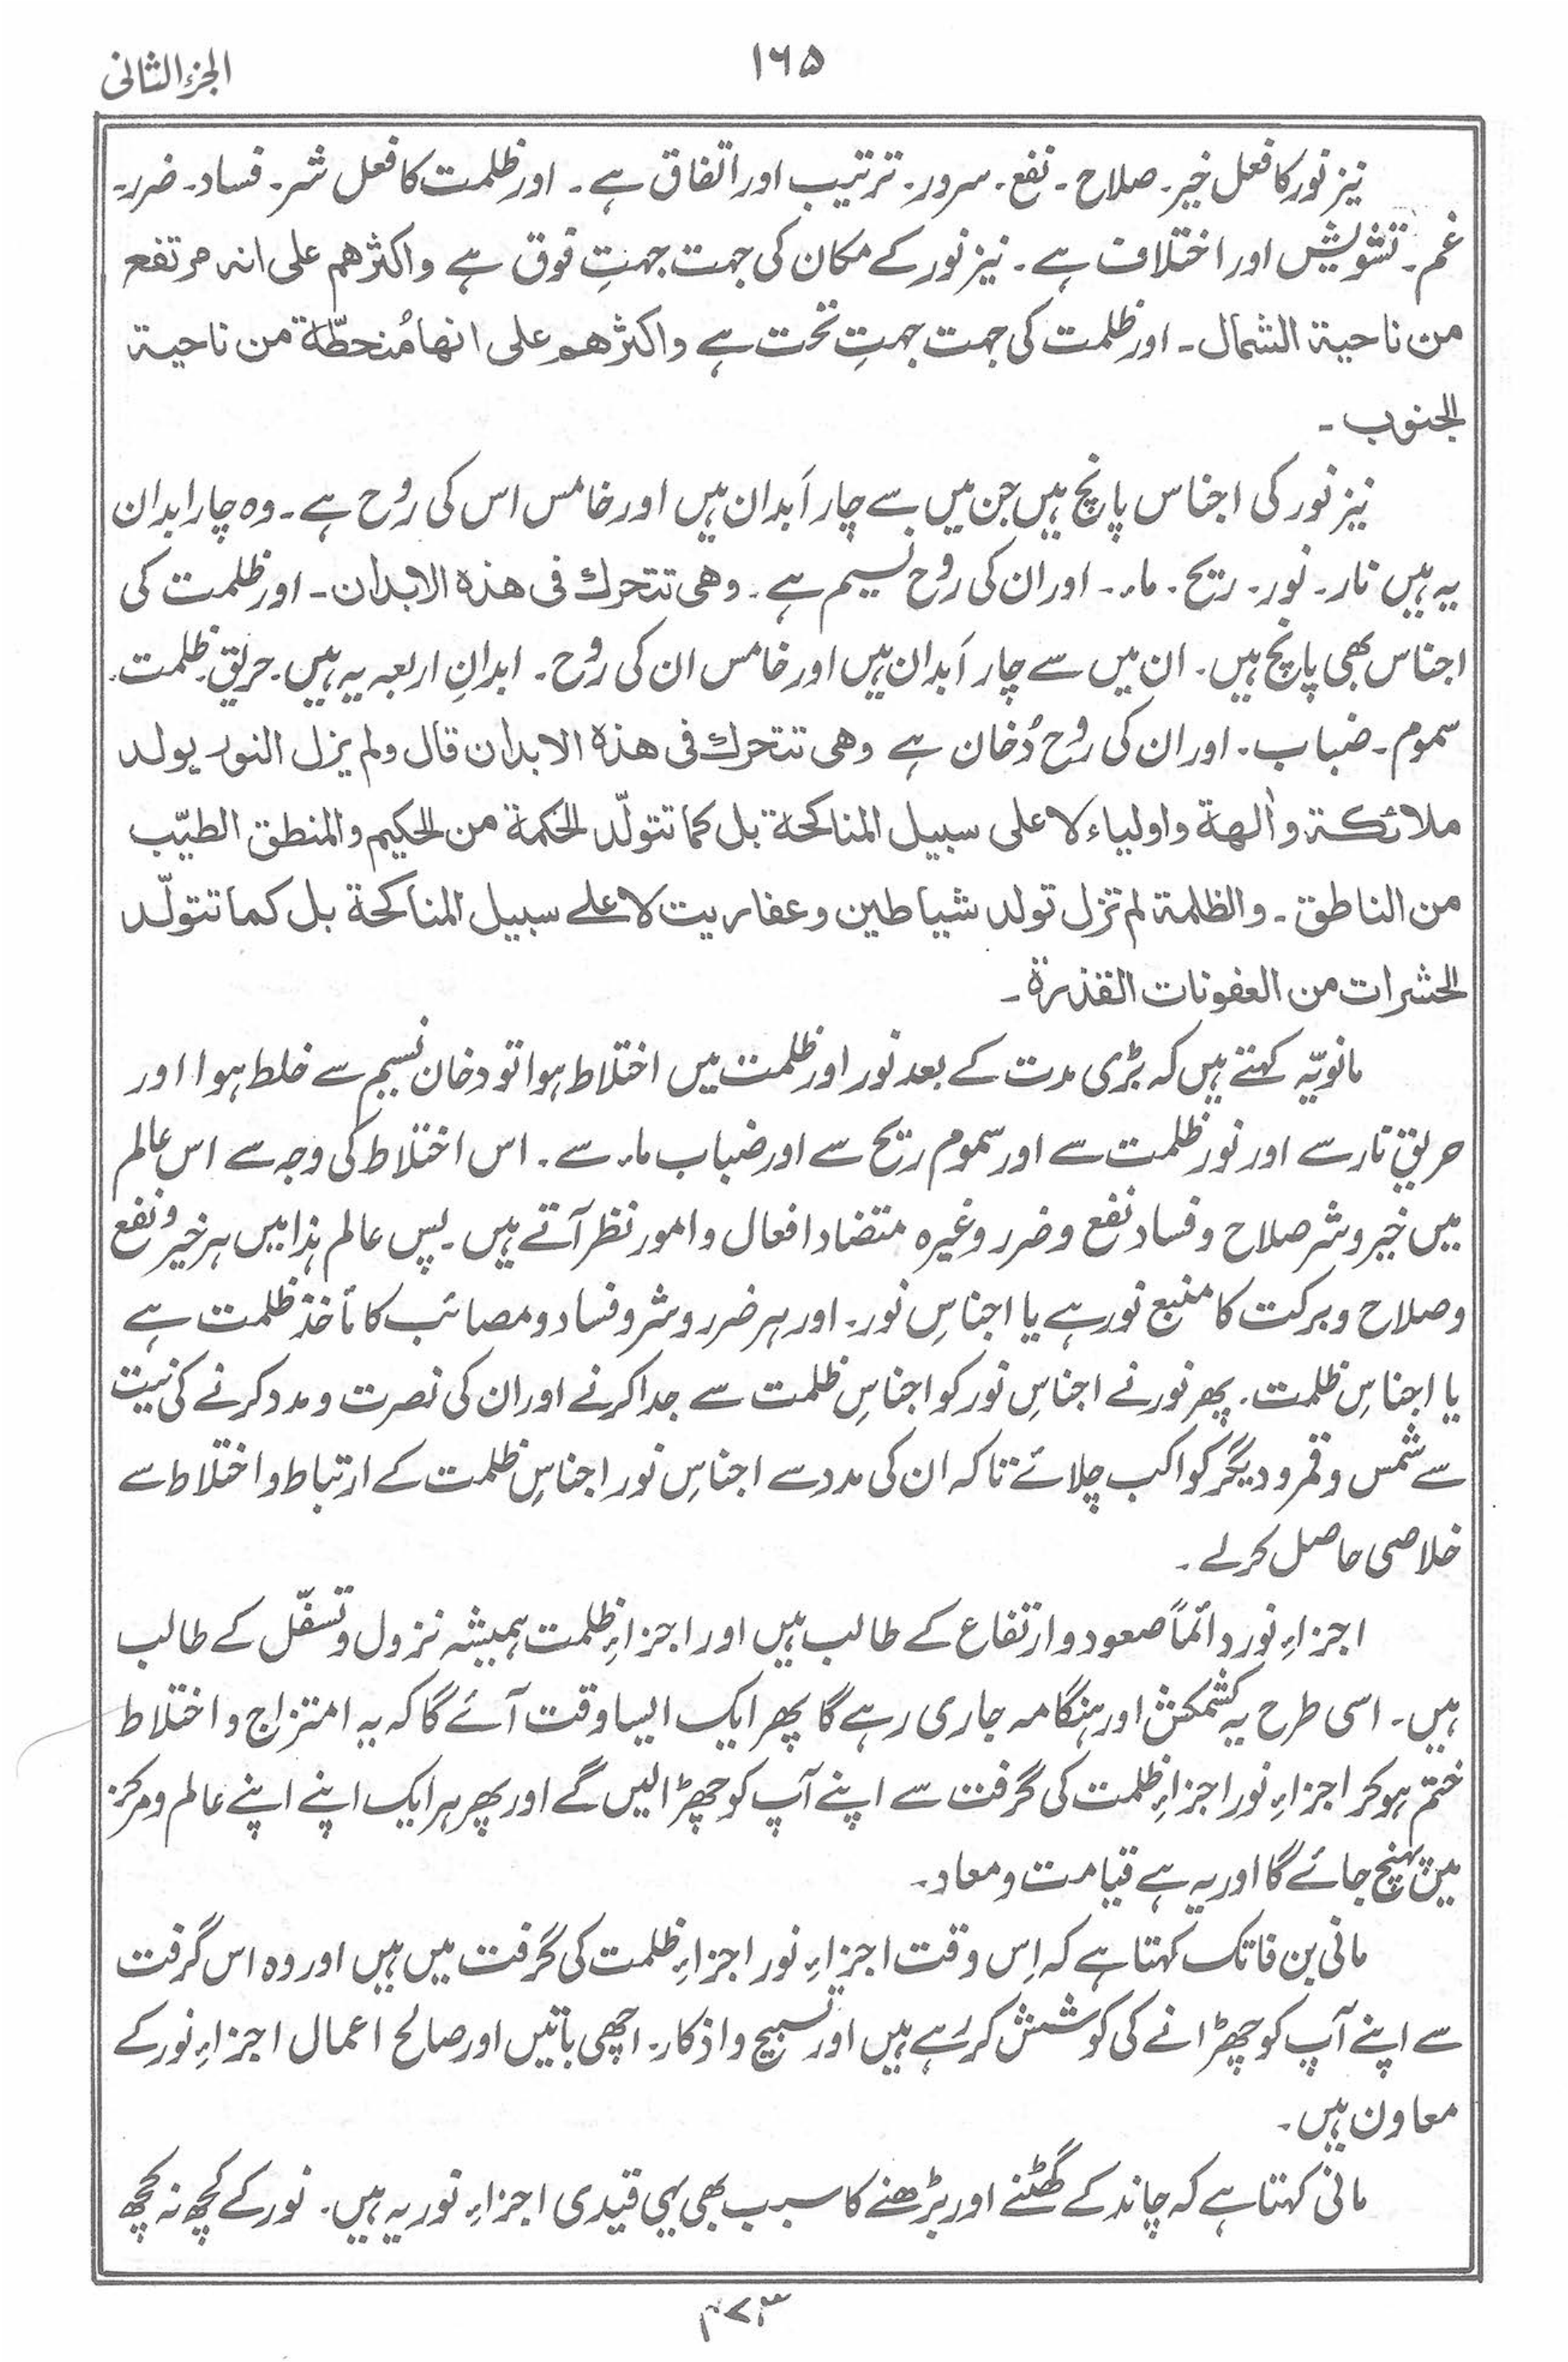 الجزء الثانی
۱۶۵
نیز نور کا فعل خیر۔ صلاح۔ نفع۔ سرور۔ ترتیب اور اتفاق ہے۔ اور ظلمت کا فعل شر۔ فساد۔ ضرر۔
غم۔ تشویش اور اختلاف ہے۔ نیز نور کے مکان کی جہت جہتِ فوق ہے واکثرھم علی انہ مرتفع
من ناحیۃ الشمال۔ اور ظلمت کی جہت جہتِ تحت ہے واکثرھم علی انھا مُنحطّۃ من ناحیۃ
الجنوب۔
نیز نور کی اجناس پانچ ہیں جن میں سے چار اَبدان ہیں اور خامس اس کی رُوح ہے۔ وہ چار ابدان
یہ ہیں نار۔ نور۔ ریح۔ ماء۔ اور ان کی روح نسیم ہے۔ وھی تتحرك فی ھذہ الابدان۔ اور ظلمت کی
اجناس بھی پانچ ہیں۔ ان میں سے چار اَبدان ہیں اور خامس ان کی روح۔ ابدانِ اربعہ یہ ہیں۔ حریق۔ ظلمت۔
سموم۔ ضباب۔ اور ان کی رُوح دُخان ہے وھی تتحرك فی ھذہ الابدان قال ولم یزل النور یولد
ملائکۃ واٰلھۃ واولیاء لا علی سبیل المناکحۃ بل کما تتولّد الحکمۃ من الحکیم والمنطق الطیّب
من الناطق۔ والظلمۃ لم تزل تولد شیاطین وعفاریت لا علے سبیل المناکحۃ بل کما تتولّد
الحشرات من العفونات القذرۃ۔
مانویّہ کہتے ہیں کہ بڑی مدت کے بعد نور اور ظلمت میں اختلاط ہوا تو دخان نسیم سے خلط ہوا اور
حریق نار سے اور نور ظلمت سے اور سموم ریح سے اور ضباب ماء سے۔ اس اختلاط کی وجہ سے اس عالم
میں خیر و شر صلاح و فساد نفع و ضرر وغیرہ متضاد افعال و امور نظر آتے ہیں۔ پس عالم ہذا میں ہر خیر و نفع
و صلاح و برکت کا منبع نور ہے یا اجناسِ نور۔ اور ہر ضرر و شر و فساد و مصائب کا مأخذ ظلمت ہے
یا اجناسِ ظلمت۔ پھر نور نے اجناسِ نور کو اجناسِ ظلمت سے جدا کرنے اور ان کی نصرت و مدد کرنے کی نیت
سے شمس و قمر و دیگر کواکب چلائے تاکہ ان کی مدد سے اجناسِ نور اجناسِ ظلمت کے ارتباط و اختلاط سے
خلاصی حاصل کرلے۔
اجزاءِ نور دائماً صعود و ارتفاع کے طالب ہیں اور اجزاءِ ظلمت ہمیشہ نزول و تسفّل کے طالب
ہیں۔ اسی طرح یہ کشمکش اور ہنگامہ جاری رہے گا پھر ایک ایسا وقت آئے گا کہ یہ امتزاج و اختلاط
ختم ہو کر اجزاءِ نور اجزاءِ ظلمت کی گرفت سے اپنے آپ کو چھڑا لیں گے اور پھر ہر ایک اپنے اپنے عالم و مرکز
میں پہنچ جائے گا اور یہ ہے قیامت و معاد۔
مانی بن فاتک کہتا ہے کہ اِس وقت اجزاءِ نور اجزاءِ ظلمت کی گرفت میں ہیں اور وہ اس گرفت
سے اپنے آپ کو چھڑانے کی کوشش کر رہے ہیں اور تسبیح و اذکار۔ اچھی باتیں اور صالح اعمال اجزاءِ نور کے
معاون ہیں۔
مانی کہتا ہے کہ چاند کے گھٹنے اور بڑھنے کا سبب بھی یہی قیدی اجزاءِ نوریہ ہیں۔ نور کے کچھ نہ کچھ